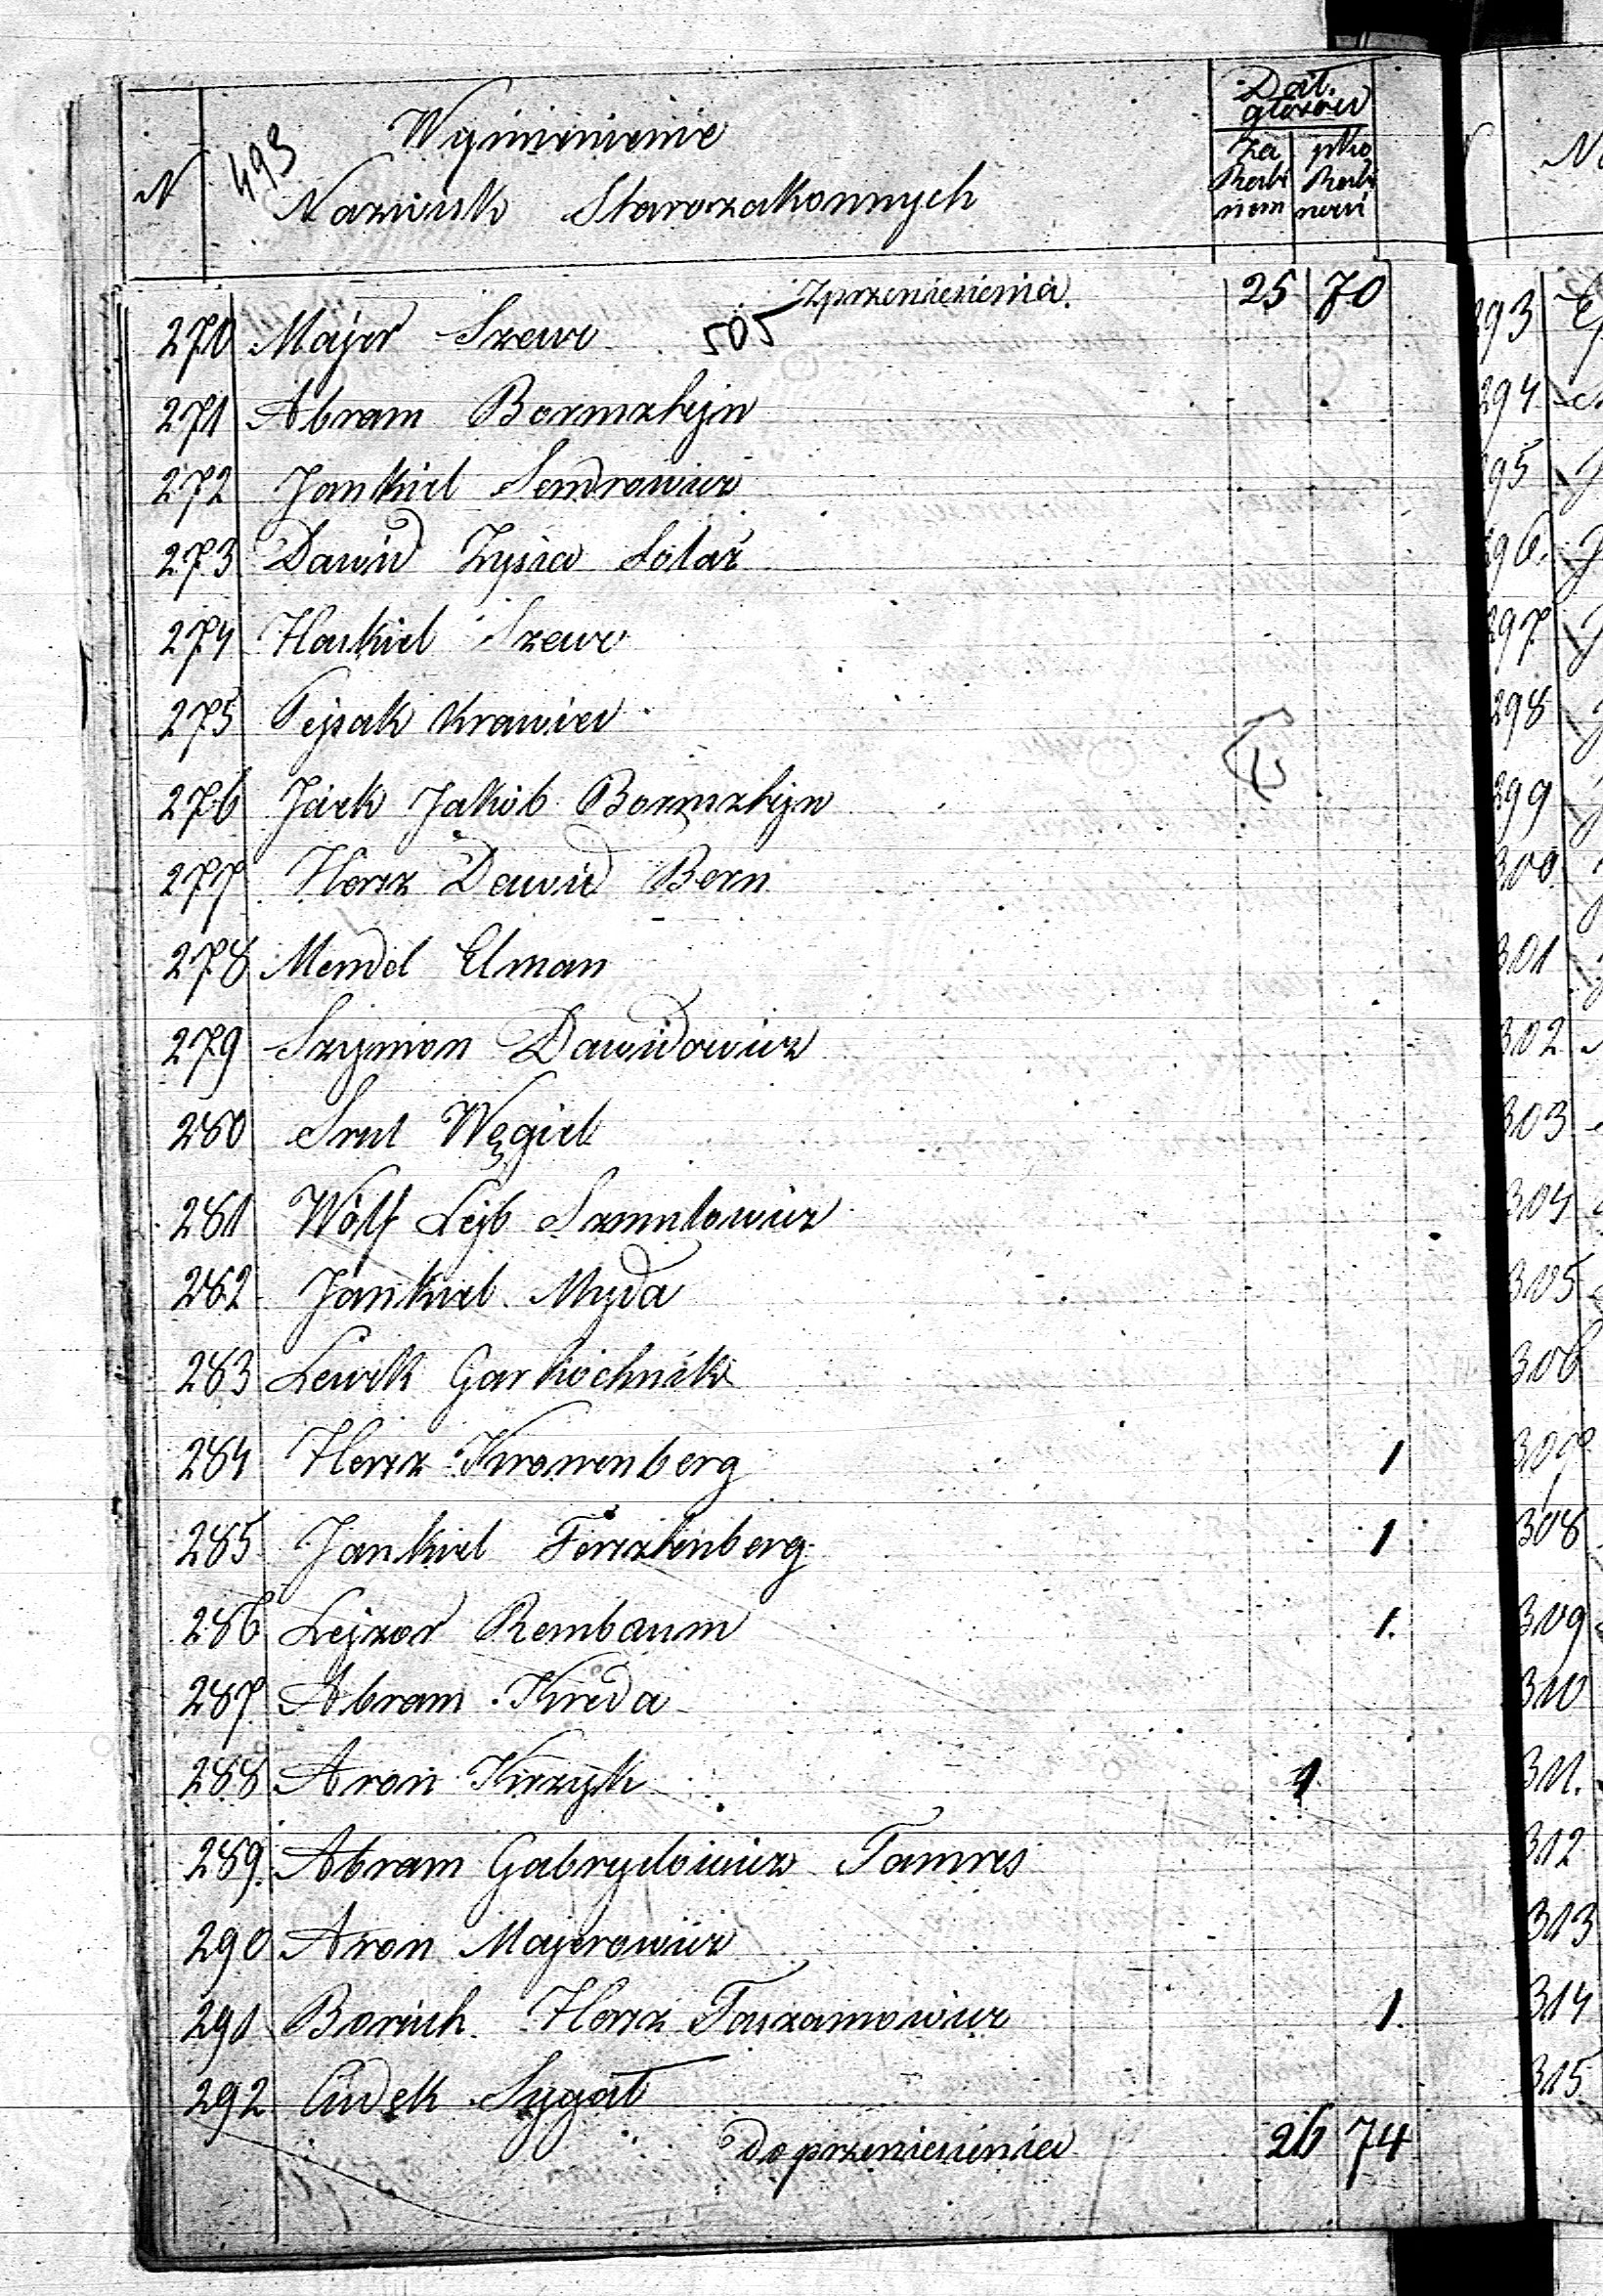 N 493 Wymienienie
Nazwisk Starozakonnych
Dał. głosów
za Rabinem
ptko Rabinowi
Z przeniesienia 25 70
270 Majer Szewc 505
271 Abram Bornsztejn
272 Jankiel Sendrowicz
273 Dawid Zysia Solarz
274 Haskiel Szewc
275 Pejsak Krawiec
276 Jcek Jakób Bornsztejn
277 Hersz Dawid Bern
278 Mendel Elman
279 Szymon Dawidowicz
280 Srul Węgiel
281 Wolf Lejb Szmulowicz
282 Jankiel Myda
283 Lewek Garkochnik
284 Hersz Kronenberg 1
285 Jankiel Fersztenberg 1
286 Lejzor Rembaum 1.
287 Abram Kreda
288 Aron Krzyk 1
289. Abram Gabrylowicz Tamres
290 Aron Majerowicz
291 Boruch Hersz 1.
292 Cudek Sygał
Do przeniesienia 26 74
293
294
295
296.
297
298
299
300
301
302
303
304
305
306
307
308
309
310
311.
312
313
314
315